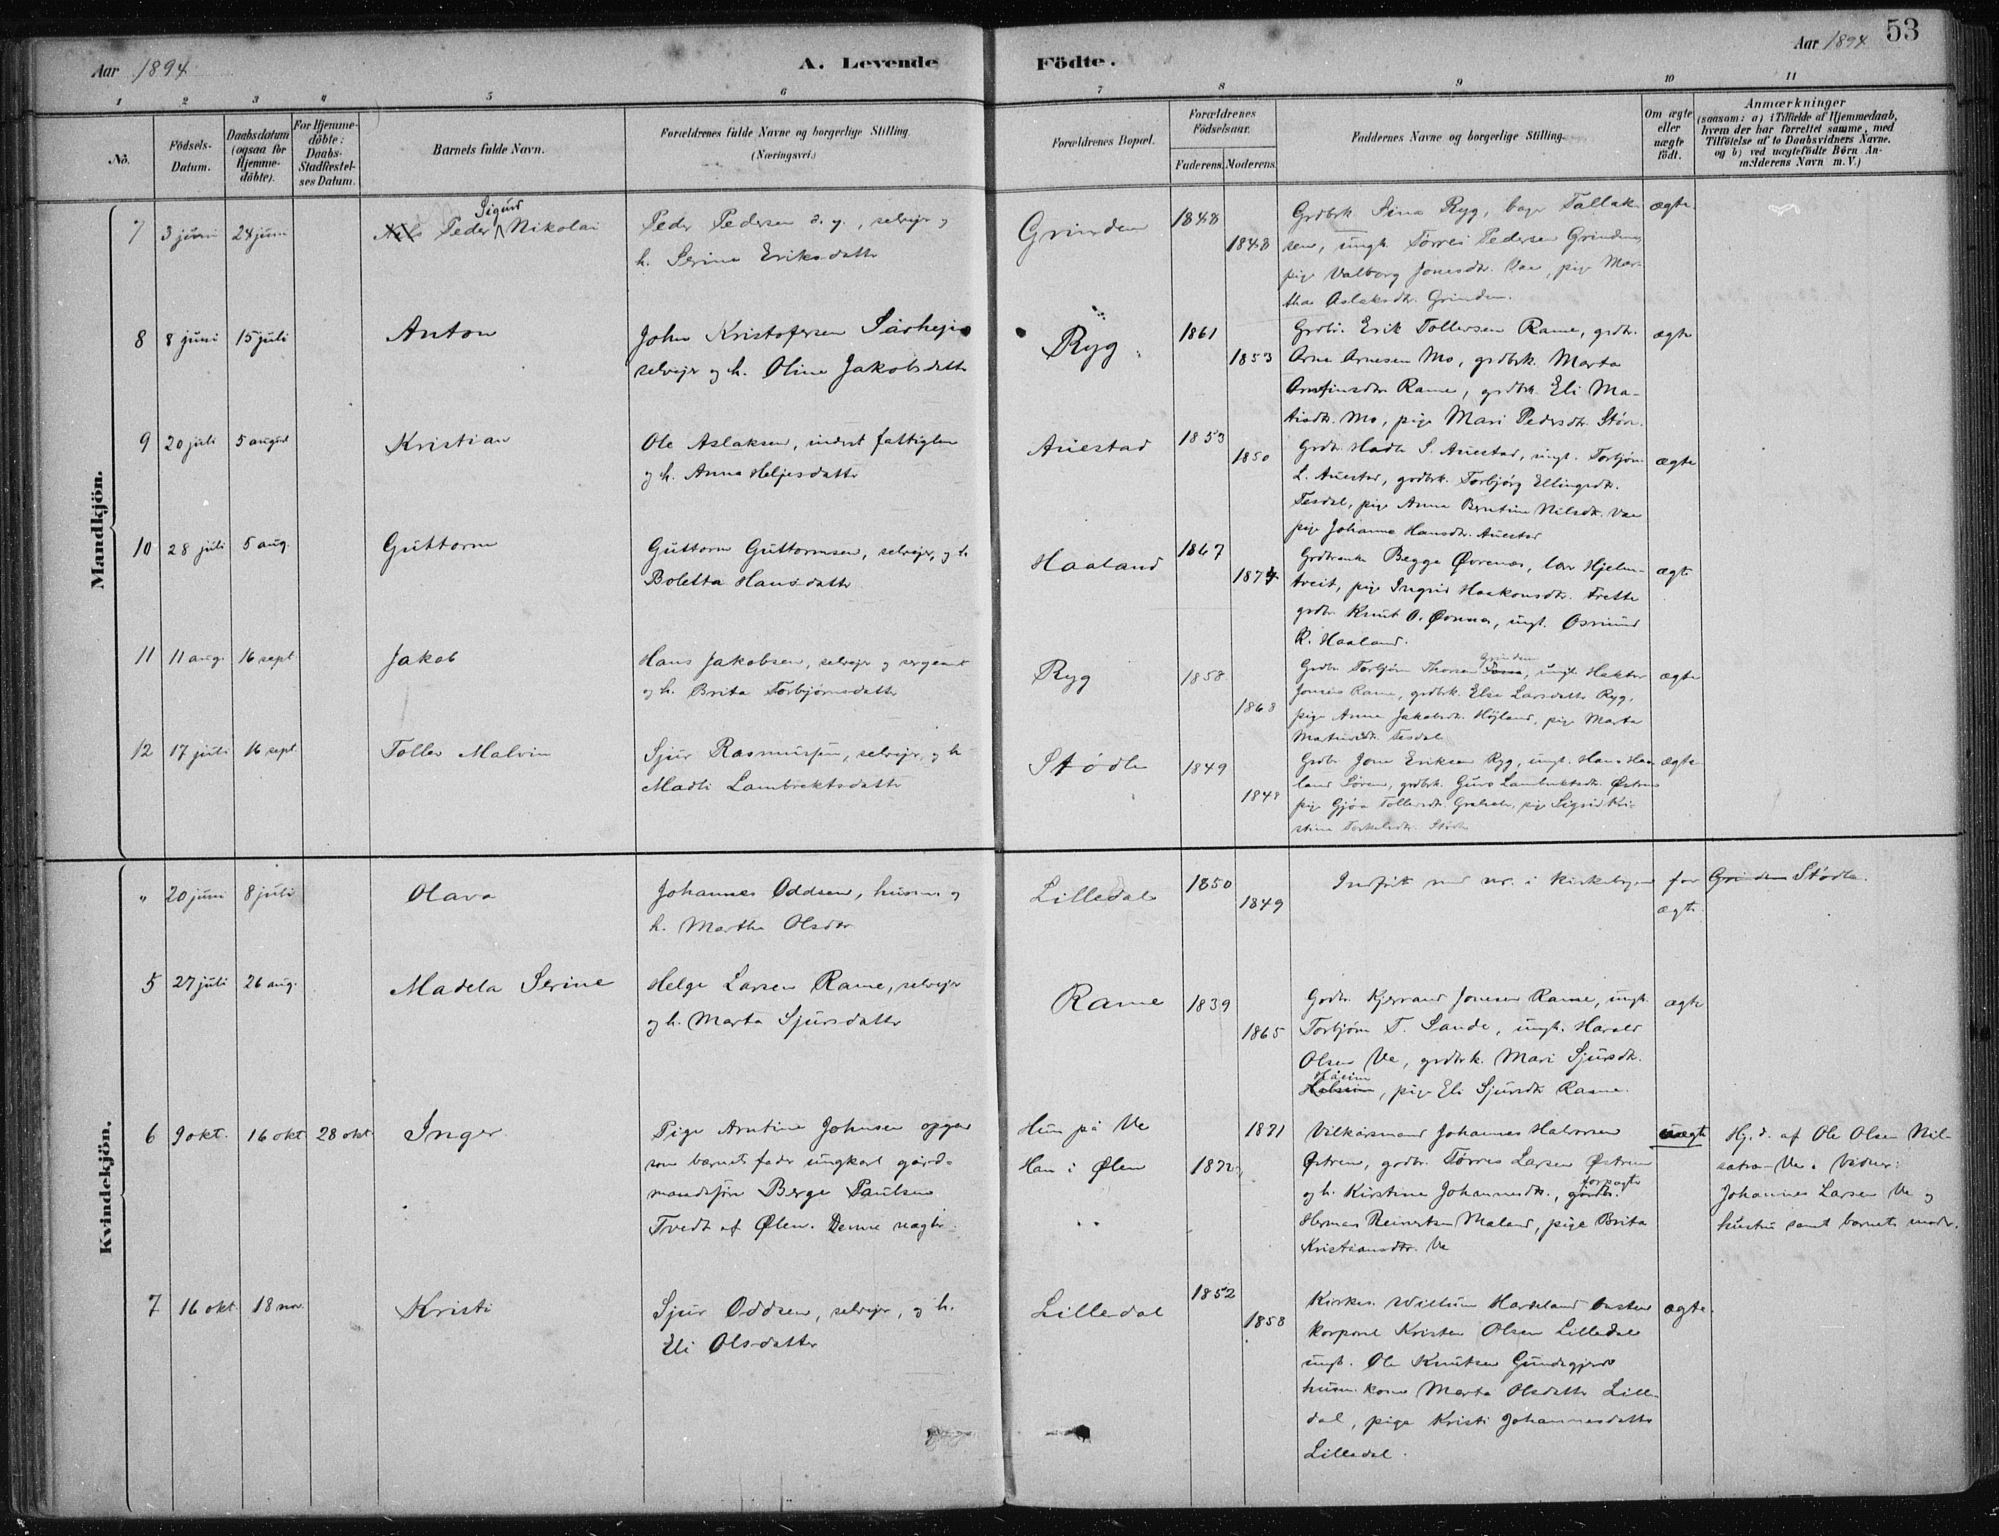 Aar 1894
A. Levende
Födte.
Aar 1894
53
1 2 3 4 5 6 7 8 9 10 11
No.
Födsels-
Datum.
Daabsdatum
(ogsaa for
Hjemme-
döbte).
For Hjemme-
döbte:
Daabs-
Stadfæstel-
ses Datum.
Barnets fulde Navn.
Forældrenes fulde Navne og borgerlige Stilling.
(Næringsvei.)
Forældrenes Bopæl.
Forældrenes
Födselsaar.
Faderens. Moderens.
Faddernes Navne og borgerlige Stilling.
Om ægte
eller
uægte
födt.
Anmærkninger
(saasom: a) i Tilfælde af Hjemmedaab,
hvem der har forrettet samme, med
Tilföielse af to Daabsvidners Navne,
og b) ved uægtefödte Börn An-
mælderens Navn m. V.)
Mandkjön.
7 3 juni 24 juni
Sigurd
Nils Peder Nikolai
Peder Pedersen d. y., selvejer og
h. Serine Eriksdatter
Grinden
1848
1848
Grdbrk. Sina Ryg, Tallak-
sen, ungk. Tørres Pedersen Grinden
pige Valborg Jonesdtr. Vae, pige Mar-
tha Aslaksdtr. Grinden.
ægte
8 8 juni 15 juli
Anton
John Kristofersen Sørheji
selvejer og h. Oline Jakobsdatter
Ryg.
1861
1853
Grdbr. Erik Tollersen Rame, grdbr.
Arne Arnesen Mo, grdbrk. Marta
Arnfinsdtr Rame, grdbrk Eli Ma-
tisdtr. Mo, pige Mari Pedersdtr. Støle
ægte
9 20 juli 5 august
Kristian
Ole Aslaksen, inderst fattiglem
og h. Anna Heljesdatter
Auestad
1853
1850
Grdbr. Hadle S. Auestad, ungk. Torbjørn
L. Auestad, grdbrk. Torbjørg Ellingsdtr.
Tesdal, pige Anna Berntine Nilsdtr. Vae
pige Johanna Hansdtr. Auestad
ægte
10 28 juli 5 aug.
Guttorm
Guttorm Guttormsen, selvejer, og h.
Boletta Hansdatter
Haaland
1867
1874
Grdbrenke Begga Øvrenes, Hjelm-
tveit, pige Ingrid Haakonsdtr. Frette
grdbr. Knut O. ungk. Osmund
R. Haaland.
ægte
11 11 aug. 16 sept
Jakob
Hans Jakobsen, selvejer og sergeant
og h. Brita Torbjørnsdatter
Ryg
1858
1868
Grinden
Grdbr. Torbjørn Thorsen ungk. Haktor
Jonesen Rame, grdbrk. Elsa Larsdatter Ryg,
pige Anna Jakobsdtr. Højland, pige Marta
Matiasdtr. Tesdal
ægte
12 17 juli 16 sept.
Tollev Malvin
Sjur Rasmussen, selvejer, og h.
Madli Lambrektsdatter
Stødle
1849
1848
Grdbr. Jone Eriksen Ryg, ungk. Hans Haa-
land Søren, grdbrk. Guro Lambrektsdtr. Østrem
pige Gjøa Tollevsdtr. pige Sigrid Kri-
stine Torkelsdtr. Stødle
ægte
Kvindekjön.
" 20 juni 8 juli
Olava
Johannes Oddsen, husm. og
h. Martha Olsdtr.
Lilledal
1850
1849
Indført med nr. i kirkebogen for Grinden Stødle.
ægte
5 27 juli 26 aug.
Madela Serine
Helge Larsen Rame, selvejer
og h. Marta Sjursdatter
Rame
1839
1865
Grdbr. Kjerrand Jonesen Rame, ungk.
Torbjørn T. Sande, ungk. Harald
Olsen Ve, grdbrk. Mari Sjursdtr.
Håeim
pige Eli Sjursdtr Rame.
ægte
6 9 okt. 16 okt 28 okt.
Inger
Pige Arntine Johnsen opgav
som barnets fader ungkarl gård-
mandssøn Berge Paulsen
Tvedt af Ølen. Denne nægter.
Hun på Ve
Han i Ølen
1872
1871
Vilkårsmand Johannes Halvorsen
Østrem, grdbr. Tørres Larsen Østrem
og h. Kirstine Johannesdtr., gårdbr.
forpagter
Herman Reinertsen Maland, pige Brita
Kristiansdtr. Ve
uægte
Hj.d. af Ole Olsen Nil-
satra-Ve. Vidner:
Johannes Larsen Ve og
hustru samt barnets moder.
7 16 okt. 18 nov.
Kristi
Sjur Oddsen, selvejer, og h.
Eli Olsdatter
Lilledal
1852
1858
Kirkes. Willum Hardeland
korporal Kristen Olsen Lilledal
ungk. Ole Knutsen Gundegjerd
husm. kone Marta Olsdatter Lille-
dal, pige Kristi Johannesdatter
Lilledal.
ægte.